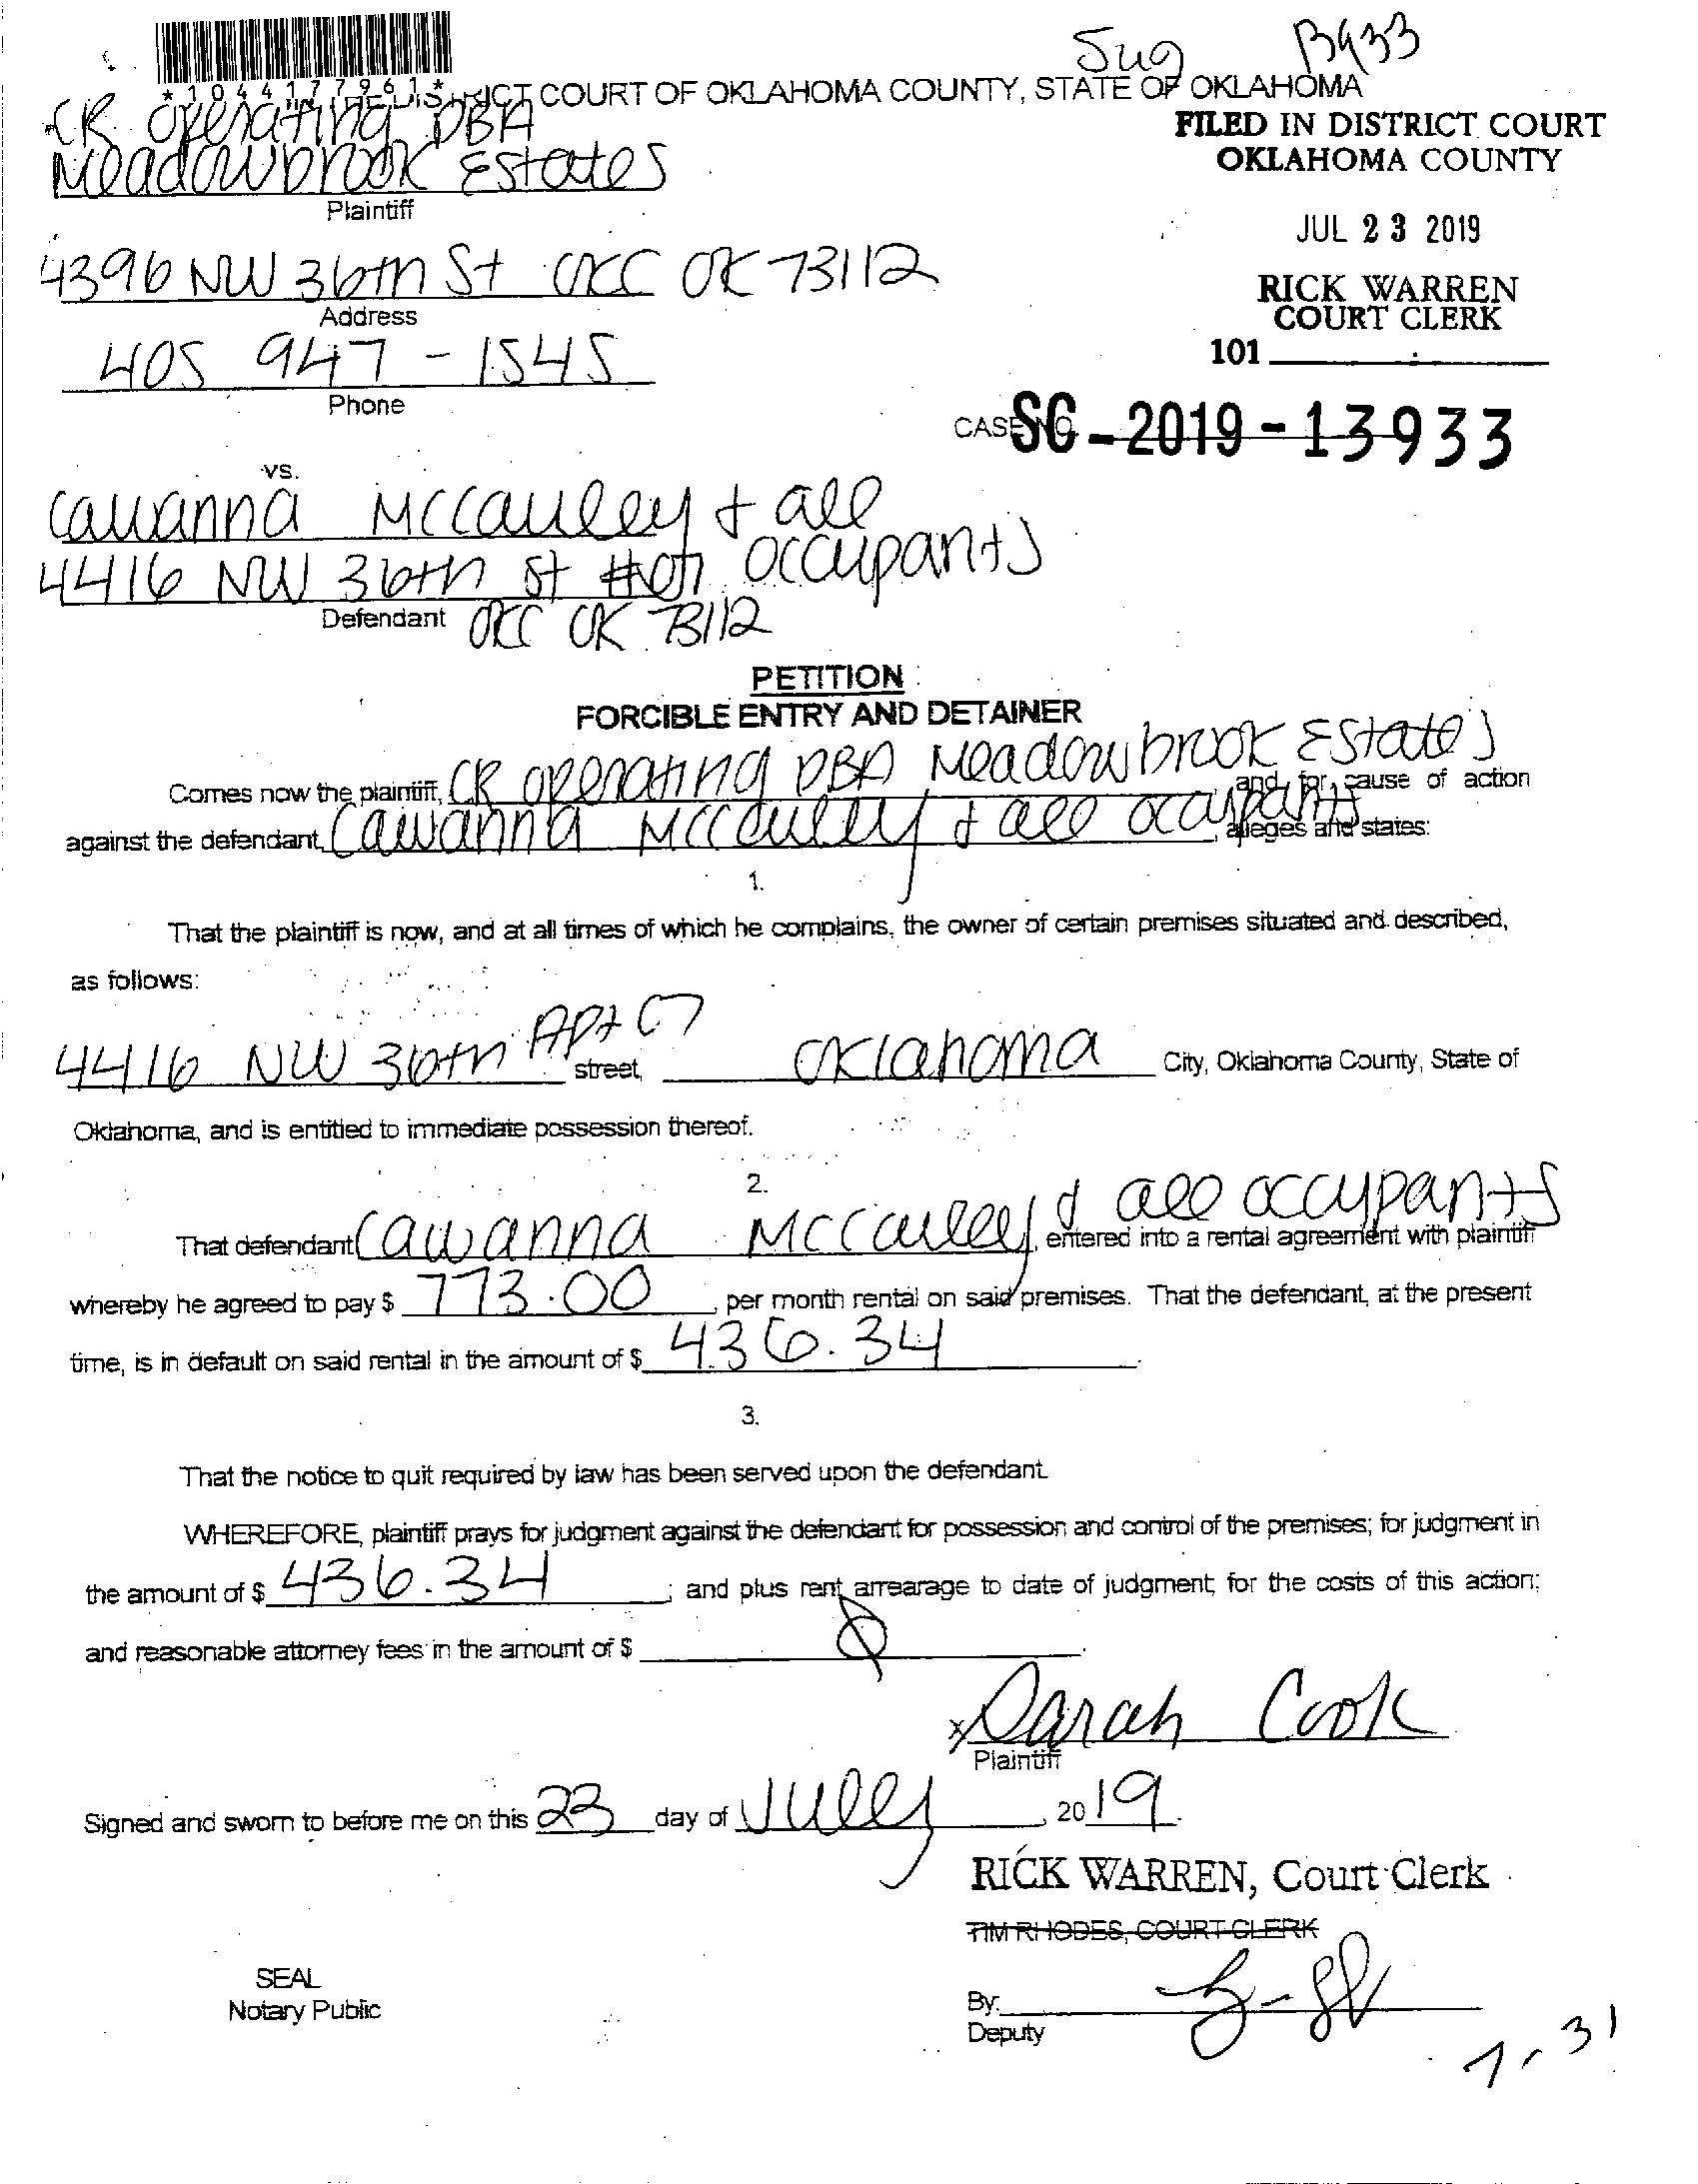 B933
*1044177961*
COURT OF OKLAHOMA COUNTY, STATE OF OKLAHOMA
FILED IN DISTRICT COURT
OKLAHOMA COUNTY
JUL 23 2019
RICK WARREN
COURT CLERK
101
CR operating DBA
Meadowbrook Estates
Plaintiff
4396 NW 36th St OKC OK 73112
Address
405 947-1545
Phone
CASE NO. SC-2019-13933
vs.
Cawanna McCauley & all
4416 NW 36th St occupants
Defendant OKC OK 73112
PETITION
FORCIBLE ENTRY AND DETAINER
Comes now the plaintiff, CR operating DBA Meadowbrook Estates, and, for cause of action
against the defendant, Cawanna McCauley & all occupants, alleges and states:
1.
That the plaintiff is now, and at all times of which he complains, the owner of certain premises situated and described,
as follows:
4416 NW 36th Apt C7 street, Oklahoma City, Oklahoma County, State of
Oklahoma, and is entitled to immediate possession thereof.
2.
That defendant Cawanna McCauley & all occupants, entered into a rental agreement with plaintiff
whereby he agreed to pay $ 773.00, per month rental on said premises. That the defendant, at the present
time, is in default on said rental in the amount of $ 436.34.
3.
That the notice to quit required by law has been served upon the defendant.
WHEREFORE, plaintiff prays for judgment against the defendant for possession and control of the premises; for judgment in
the amount of $ 436.34; and plus rent arrearage to date of judgment; for the costs of this action;
and reasonable attorney fees in the amount of $ Ø.
x Sarah Cook
Plaintiff
Signed and sworn to before me on this 23 day of July, 2019.
RICK WARREN, Court Clerk
TIM RHODES, COURT CLERK
SEAL
Notary Public
By:
Deputy
7-31